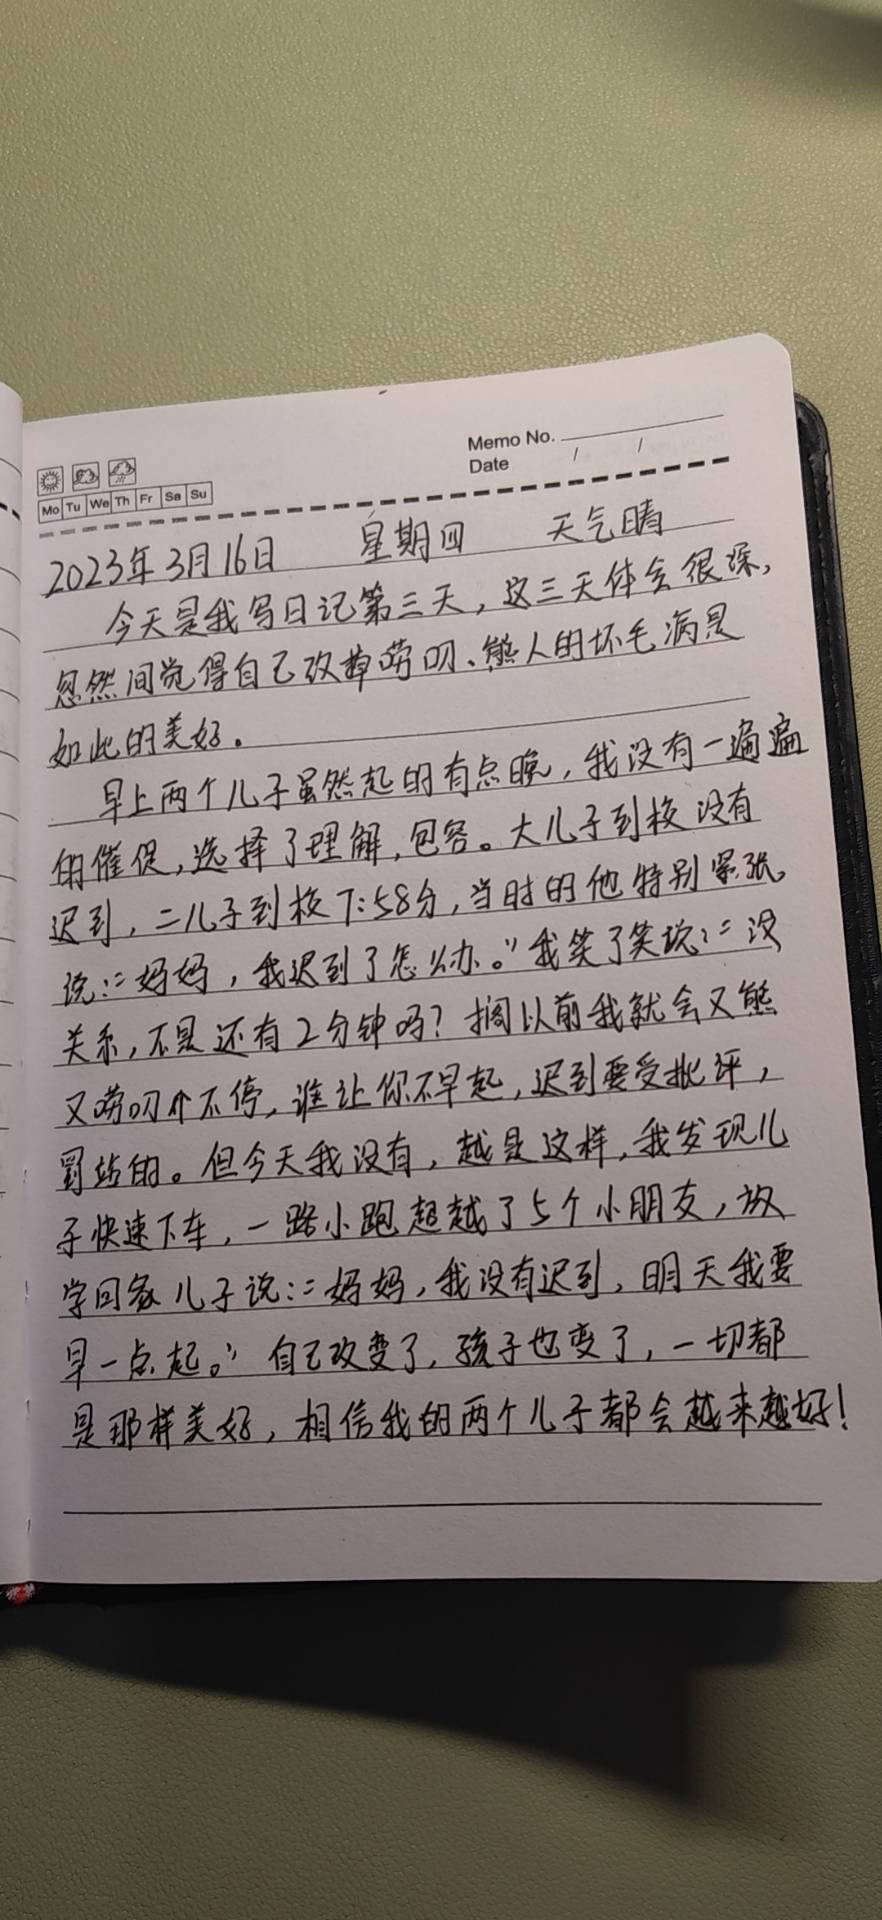 Memo No.
Date / /
Mo Tu We Th Fr Sa Su
2023年3月16日 星期四 天气晴
今天是我写日记第三天，这三天体会很深，
忽然间觉得自己改掉唠叨、熊人的坏毛病是
如此的美好。
早上两个儿子虽然起的有点晚，我没有一遍遍
的催促，选择了理解，包容。大儿子到校没有
迟到，二儿子到校7:58分，当时的他特别紧张。
说："妈妈，我迟到了怎么办。"我笑了笑说："没
关系，不是还有2分钟吗？搁以前我就会又熊
又唠叨个不停，谁让你不早起，迟到要受批评，
罚站的。但今天我没有，越是这样，我发现儿
子快速下车，一路小跑超越了5个小朋友，放
学回家儿子说："妈妈，我没有迟到，明天我要
早一点起。" 自己改变了，孩子也变了，一切都
是那样美好，相信我的两个儿子都会越来越好！